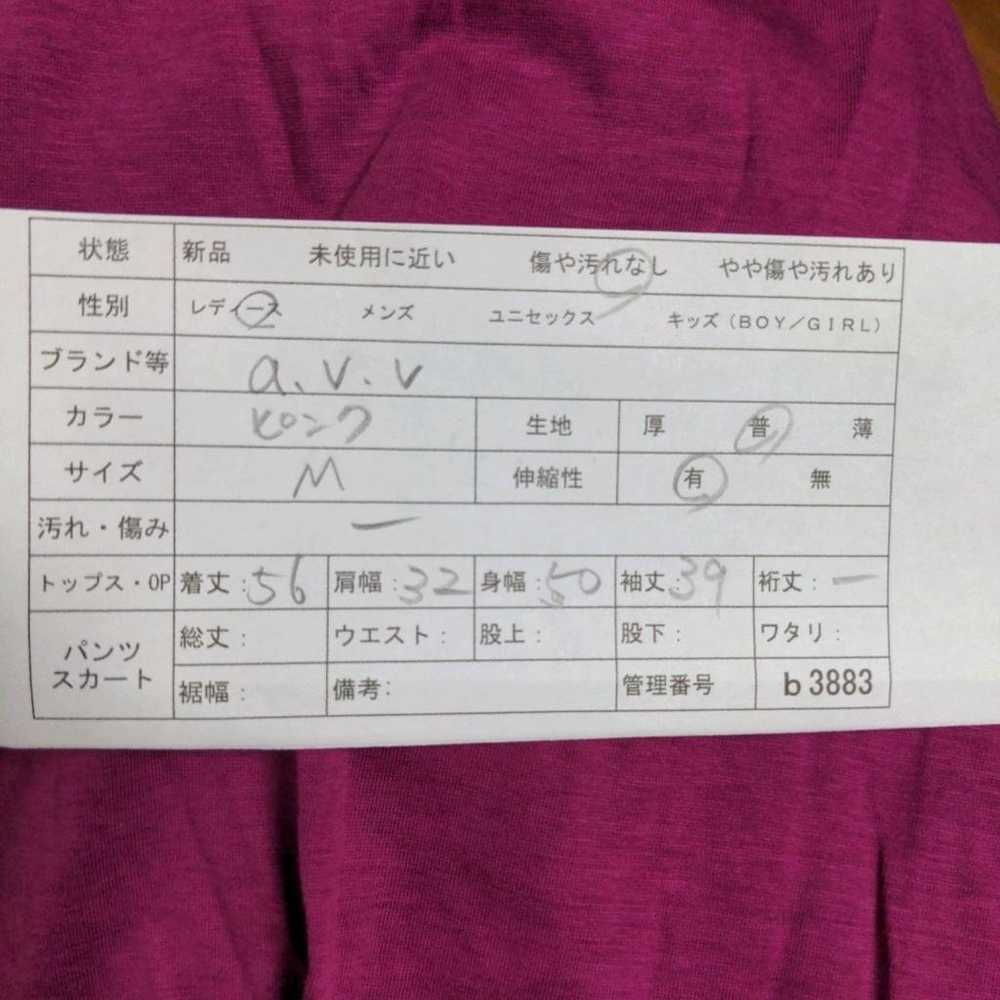 状態 新品 未使用に近い 傷や汚れなし やや傷や汚れあり
性別 レディース メンズ ユニセックス キッズ(BOY/GIRL)
ブランド等 a.v.v
カラー ピンク 生地 厚 普 薄
サイズ M 伸縮性 有 無
汚れ・傷み ー
トップス・OP 着丈:56 肩幅:32 身幅:50 袖丈:39 裄丈:ー
パンツ スカート 総丈: ウエスト: 股上: 股下: ワタリ:
裾幅: 備考: 管理番号 b3883